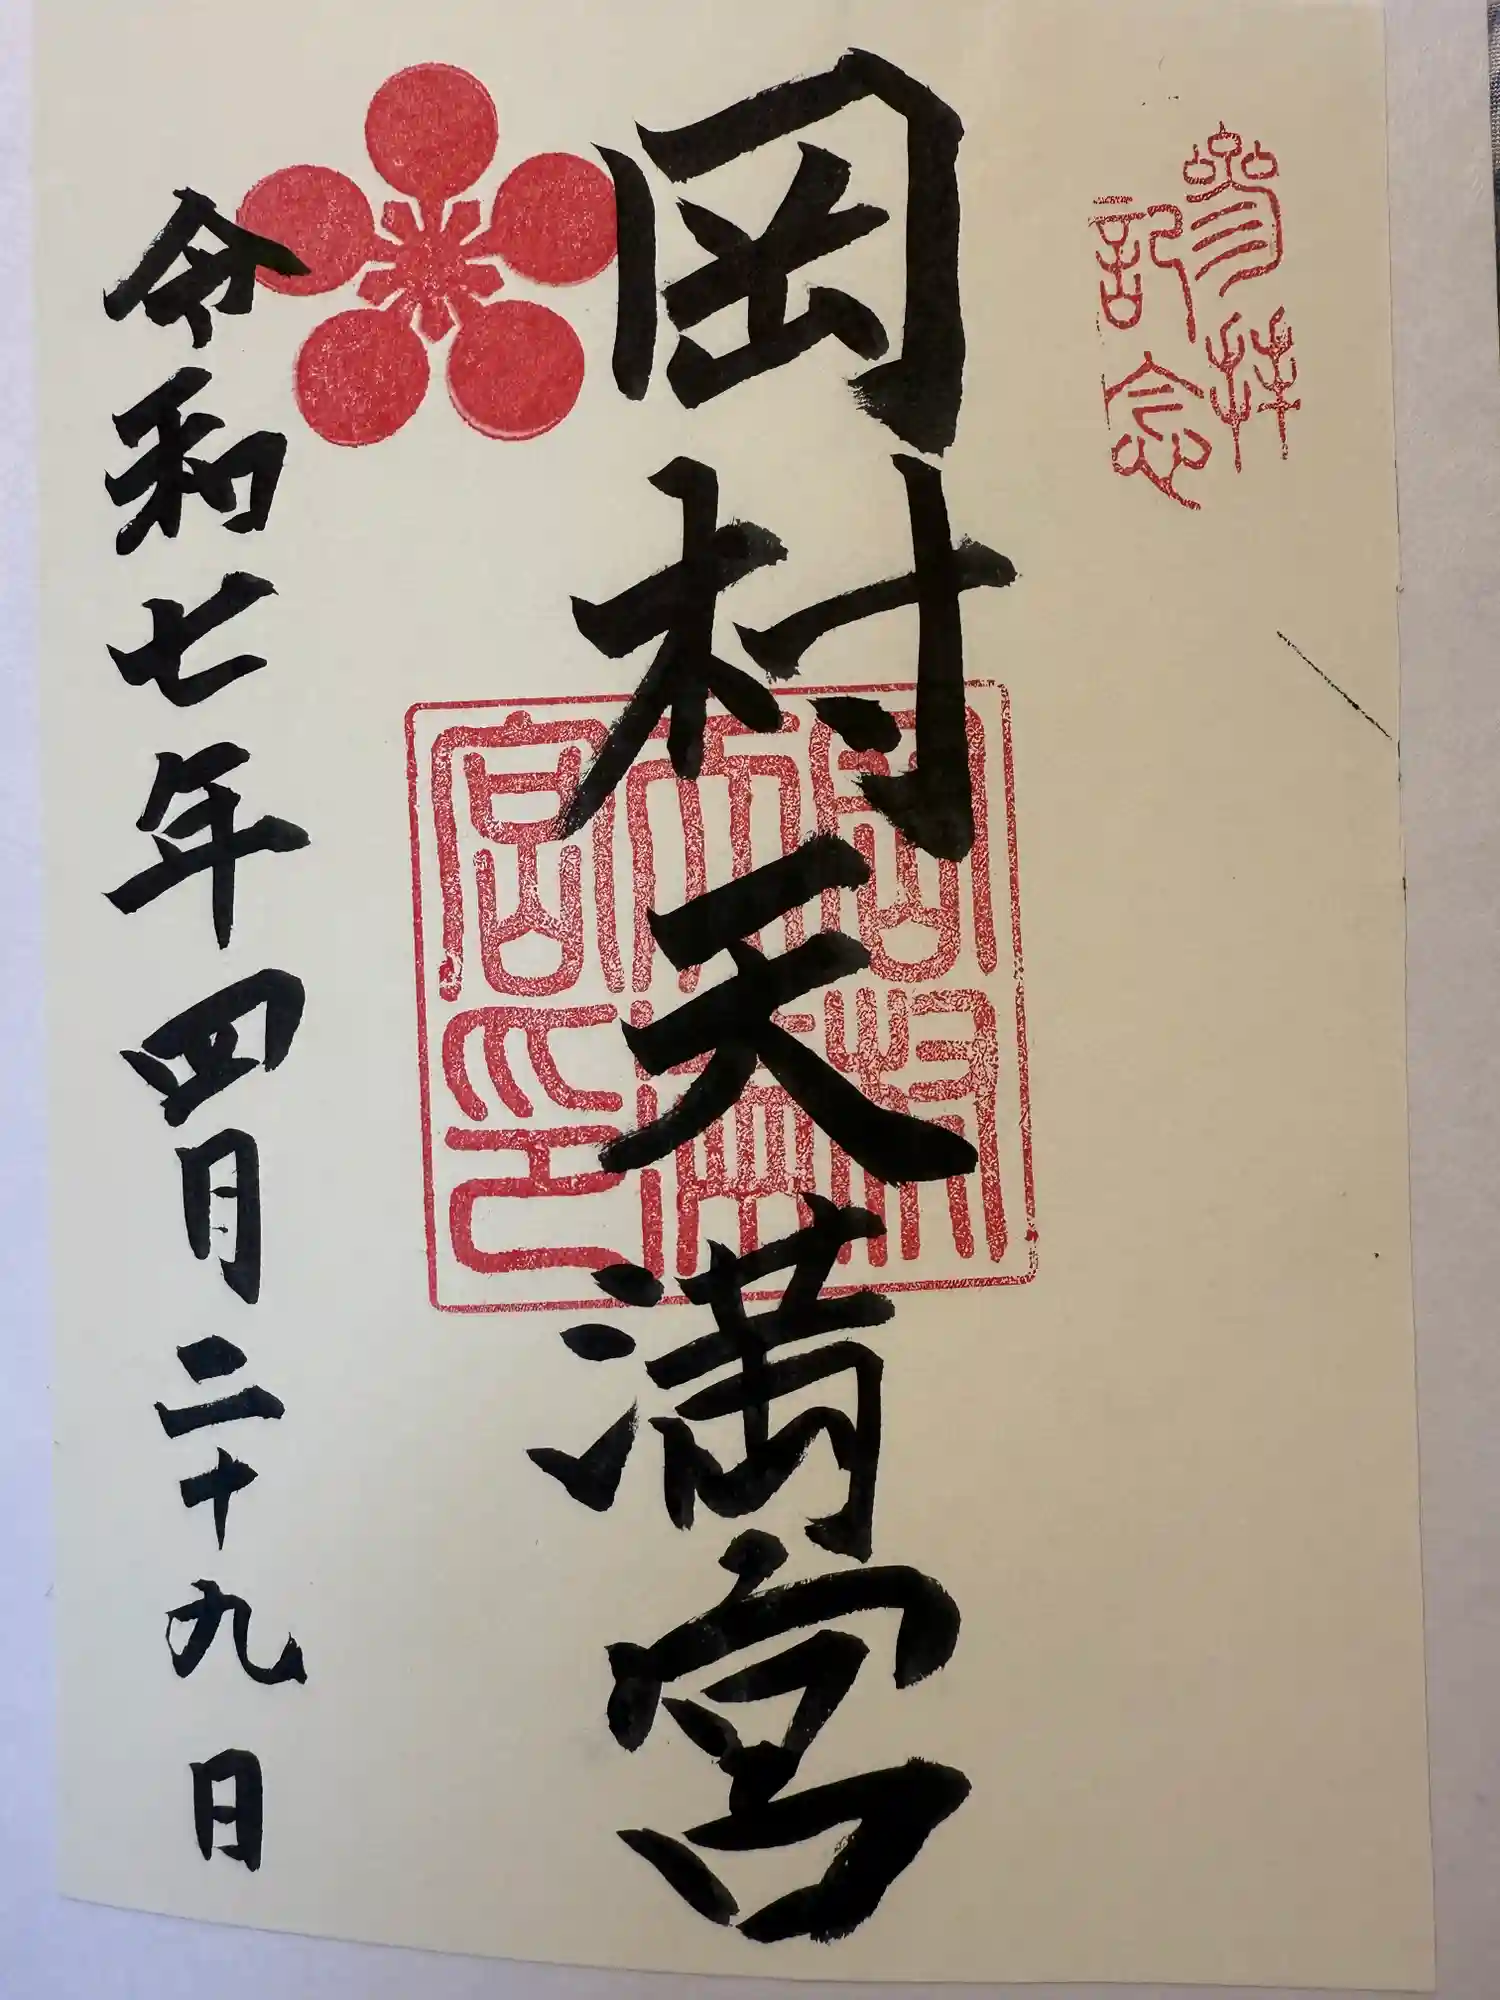 参拝
記念
岡村天満宮
岡村
天満
宮之印
令和七年四月二十九日